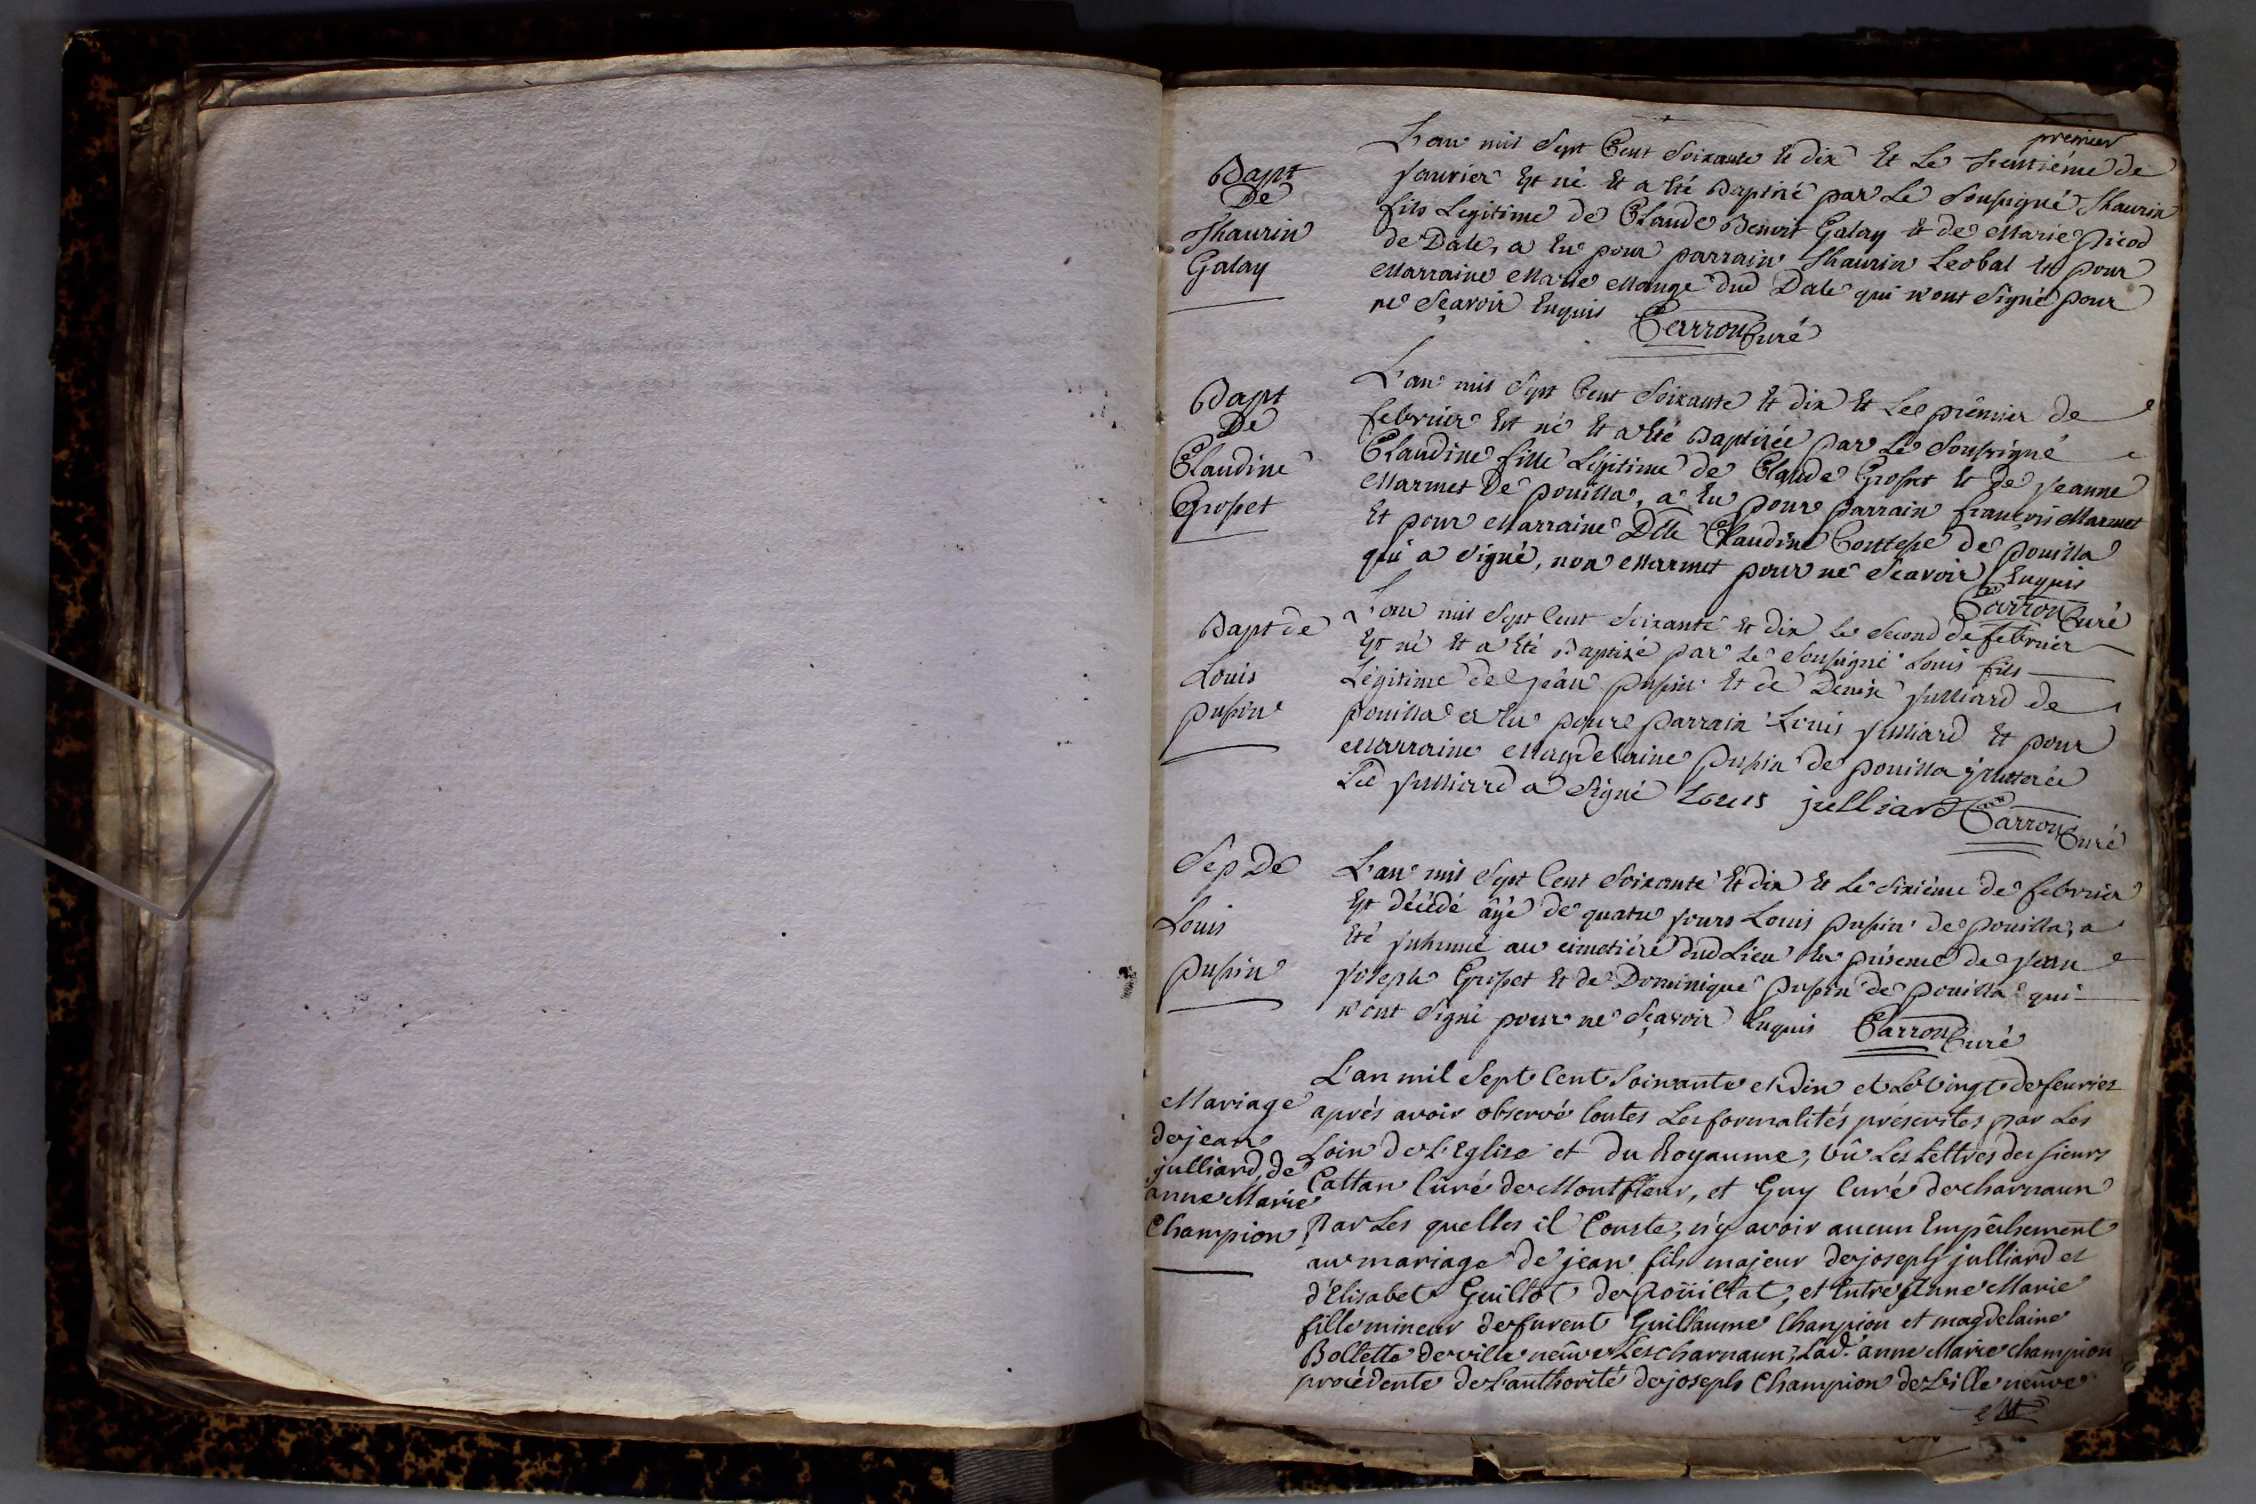 premier
L'an mil Sept Cent Soixante Et dix Et Le trentiéme de
Janvier Est né Et a Eté Baptisé par Le Soussigné Thaurin
fils Legitime de Claude Benoit Galay Et de Marie Picod
de Dale, a Eu pour parrain Thaurin Leobal Et pour
Marraine Marie Monge dud Dale qui n'ont Signé pour
ne Sçavoir Enquis Carron Curé
Bapt
De
Thaurin
Galay
L'an mil Sept Cent Soixante Et dix Et Le prémier de
febvrier Est né Et a Eté Baptisée par Le Soussigné
Claudine fille Légitime de Claude Grosset Et de Jeanne
Marmet De pouilla, a Eu pour parrain françois Marmet
Et pour Marraine Dlle Claudine Conttesse de pouilla
qui a Signé, non Marmet pour ne Sçavoir Enquis
Carron Curé
Bapt
De
Claudine
Grosset
L'an mil Sept Cent Soixante Et dix Le Second de febvrier
Est né Et a Eté Baptisé par Le Soussigné Louis fils
Légitime de Jean pupin Et de Denise Julliard de
pouilla a Eu pour parrain Louis Julliard Et pour
Marraine Magdelaine pupin de pouilla
Led Julliard a Signé Louis julliard Carron Curé
Bapt de
Louis
pupin
L'an mil Sept Cent Soixante Et dix Et Le Sixiéme de febvrier
Est décédé âgé de quatre jours Louis pupin de pouilla, a
Eté Inhumé au cimetiére dud Lieu En présence de Jean
Joseph Grosset Et de Dominique pupin de pouilla qui
n'ont Signé pour ne Sçavoir Enquis Carron Curé
Sep De
Louis
pupin
L'an mil Sept Cent Soixante et Dix et Le Vingt de feurier
aprés avoir observé toutes Les formalités préscrites par Les
Loix de L'Eglise et du Royaume, Vû Les Lettres des Sieurs
Cattan Curé de Montfleur, et Guy Curé de charnaux
Par Les quelles il Conste, n'y avoir aucun Empêchement
au mariage de jean fils majeur de joseph julliard et
d'Elisabet Guillot de Poüillat, et Entre Anne Marie
fille mineur de furent Guillaume Champion et magdelaine
Bollette de ville neûve Les charnaux, Lad. anne Marie Champion
procédente de L'authorité de joseph Champion de Ville neûve
Mariage
de jean
julliard, de
anne Marie
Champion